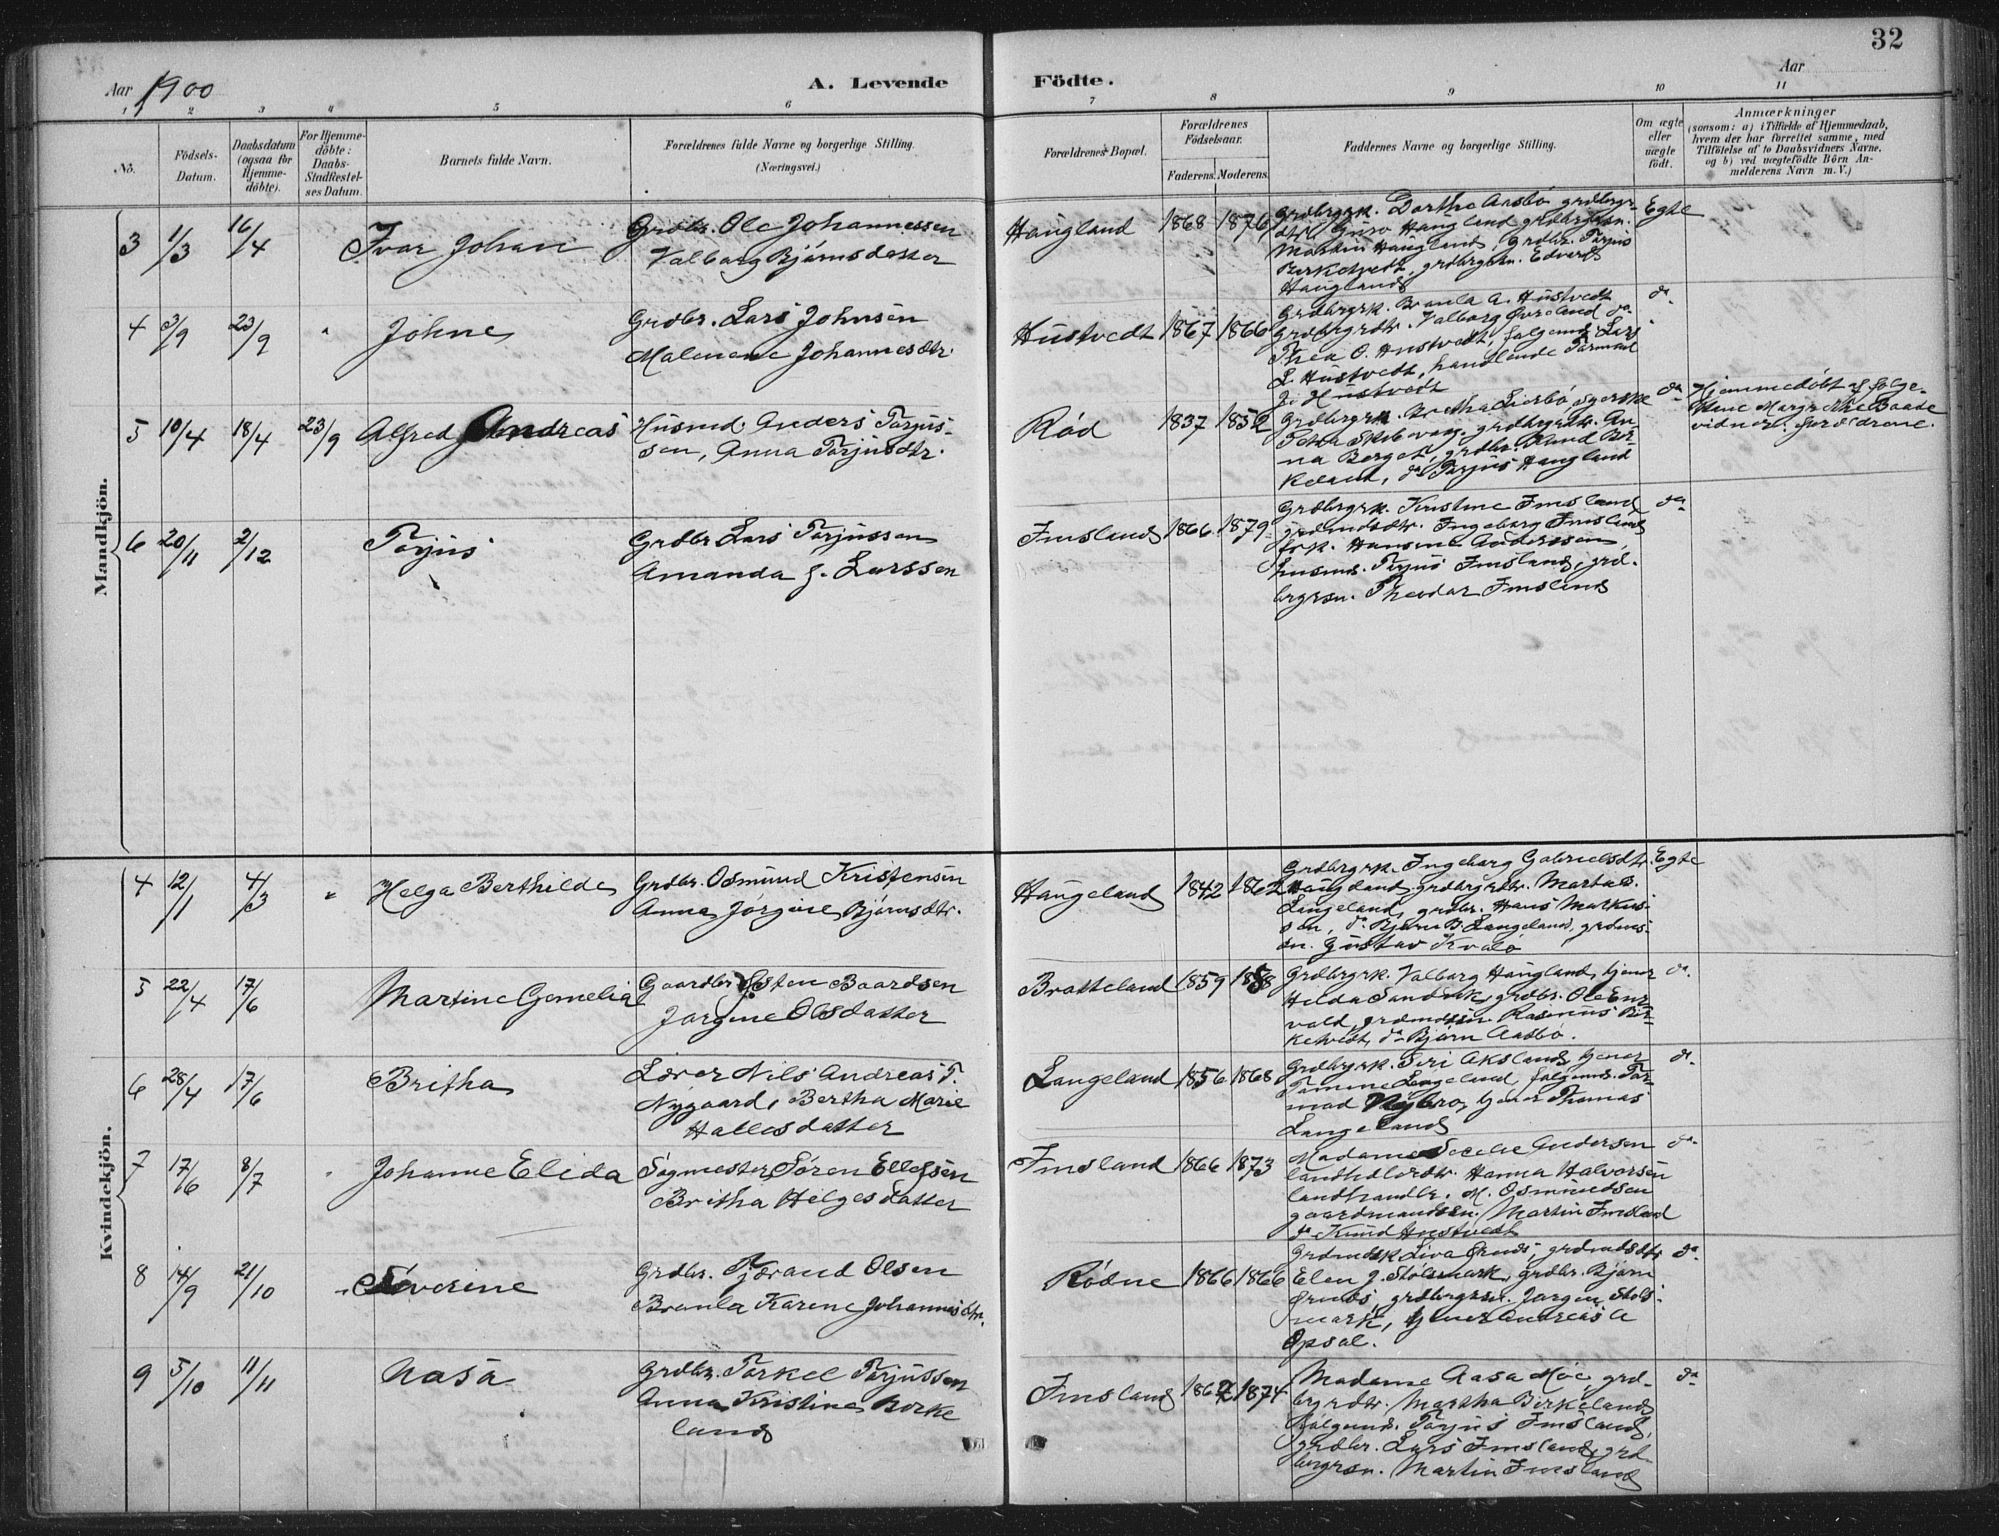 32
Aar 1900 A. Levende Födte. Aar
1 2 3 4 5 6 7 8 9 10 11
No. Födsels-Datum. Daabsdatum (ogsaa för Hjemme-döbte). For Hjemme-döbte: Daabs-Stadfæstel-ses Datum. Barnets fulde Navn. Forældrenes fulde Navne og borgerlige Stilling. (Næringsvei.) Forældrenes Bopæl. Forældrenes Födselsaar. Faderens. Moderens. Faddernes Navne og borgerlige Stilling. Om ægte eller uægte födt. Anmærkninger
(saasom: a) i Tilfælde af Hjemmedaab, hvem der har forrettet samme, med Tilföielse af to Daabsvidners Navne, og b) ved uægtefödte Börn An-melderens Navn m. V.)
Mandkjön.
3 1/3 16/4 Ivar Johan Grdbr. Ole Johannessen
Valborg Bjørnsdatter
Haugland 1868 1876
Grdbrgrk. Dorthe Aasbø grdbrgr-
dtr. Guro Haugland grdbrgrsn.
Martin Haugland, grdbr. Tarjus
Birketvedt, grdbrgrsn. Edvard
Haugland
Egte
4 3/9 23/9 " Johne Grdbr. Lars Johnsen
Malenene Johannesdtr.
Hustvedt 1867 1866
Grdbrgrk. Braula A. Hustvedt
Grdbrgrdtr. Valborg Øvreland, da
Thea O. Hustvedt, følgemd. Lars
L. Hustvedt, handlende Tormod
J. Hustvedt
da
5 10/4 18/4 23/9 Alfred Andreas Husmd. Anders Tarjus-
sen, Anna Tarjusdtr.
Rød 1837 1852
Grdbrgrk. Bretha Lierbø, syerske
Petra Skolevang, grdbrgrdtr. An-
na Berget, grdbr. Knud Bir-
keland, da Tarjus Haugland
da
Hjemmedøbt af følge-
kone Margrethe Baade
vidner: forældrene.
6 20/11 2/12 Tarjus Grdbr. Lars Tarjussen
Amanda J. Larssen
Imsland 1866 1879
Grdbrgrk. Kristine Imsland
grdmdsdtr. Ingeborg Imsland
frk. Hansine Anderssen
husmd. Tarjus Imsland, grd-
brgrsn. Theodor Imsland
da
Kvindekjön.
4 12/1 4/3 " Helga Berthilde Grdbr. Osmund Kristensen
Anna Jørgine Bjørnsdtr.
Haugeland 1842 1862
Grdbrgrk. Ingeborg Gabrielsdtr.
Haugland, grdbrgrdtr. Martha S.
Langeland, grdbr. Hans Markus-
sen, da Bjørn B. Langeland, grdmds-
sn. Gustav Kvalø
Egte
5 22/4 17/6 Martine Gemelia Gaardbr. Østen Baardsen
Jørgine Olsdatter
Bratteland 1859 1858
Grdbrgrk. Valborg Haugland, tjener
Helda Sandvik, grdbr. Ole Eur-
vald, grdmdssn. Rasmus Bir-
ketvedt, da Bjørn Aasbø.
da
6 28/4 17/6 Britha Lærer Nils Andreas T.
Nygaard, Bertha Marie
Hallesdatter
Langeland 1856 1868
Grdbrgrk. Siri Aksland, tjener
Tomine Langeland, følgemd. Tor-
mod Nybro, tjener Thomas
Langeland
da
7 17/6 8/7 " Johanne Elida Sagmester Søren Ellefsen
Britha Helgesdatter
Imsland 1866 1873
Madame Secelie Andersen
landhdlerdtr. Hanna Halvorsen
landhandlr. M. Osmundsen
gaardmandssn. Martin Imsland
da Knud Hustvedt
da
8 14/9 21/10 " Severine Grdbr. Tjærand Olsen
Braula Karene Johannesdtr.
Rødne 1866 1866
Grdmdsk. Liva Ørnds, grdmdsdtr.
Elen J. Stølsmark, grdbr. Bjørn
Ørnds, grdbrgrsn. Jørgen Støls-
mark, tjener Andreas A
Opsal.
da
9 5/10 11/11 Aasa Grdbr. Torkel Tarjussen
Anna Kristine Birke
land
Imsland 1867 1874
Madame Aasa Moe grd-
brgrdtr. Martha Birkeland
følgemd. Tarjus Imsland,
grdbr. Lars Imsland, grd-
brgrsn. Martin Imsland
da